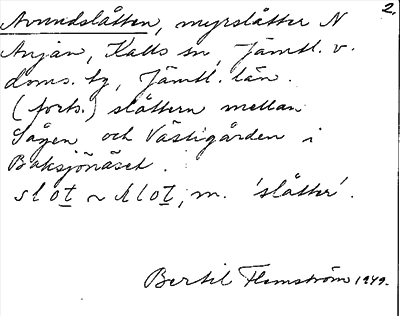 2.
Avundslåtten, myrslåtter N
Anjan, Kalls sn, Jämtl. v.
doms. tg, Jämtl. län.
(forts.) slåttern mellan
Sågen och Västigården i
Baksjönäset.
slot ~ slot, m. 'slåtter'.
Bertil Flemström 1949.